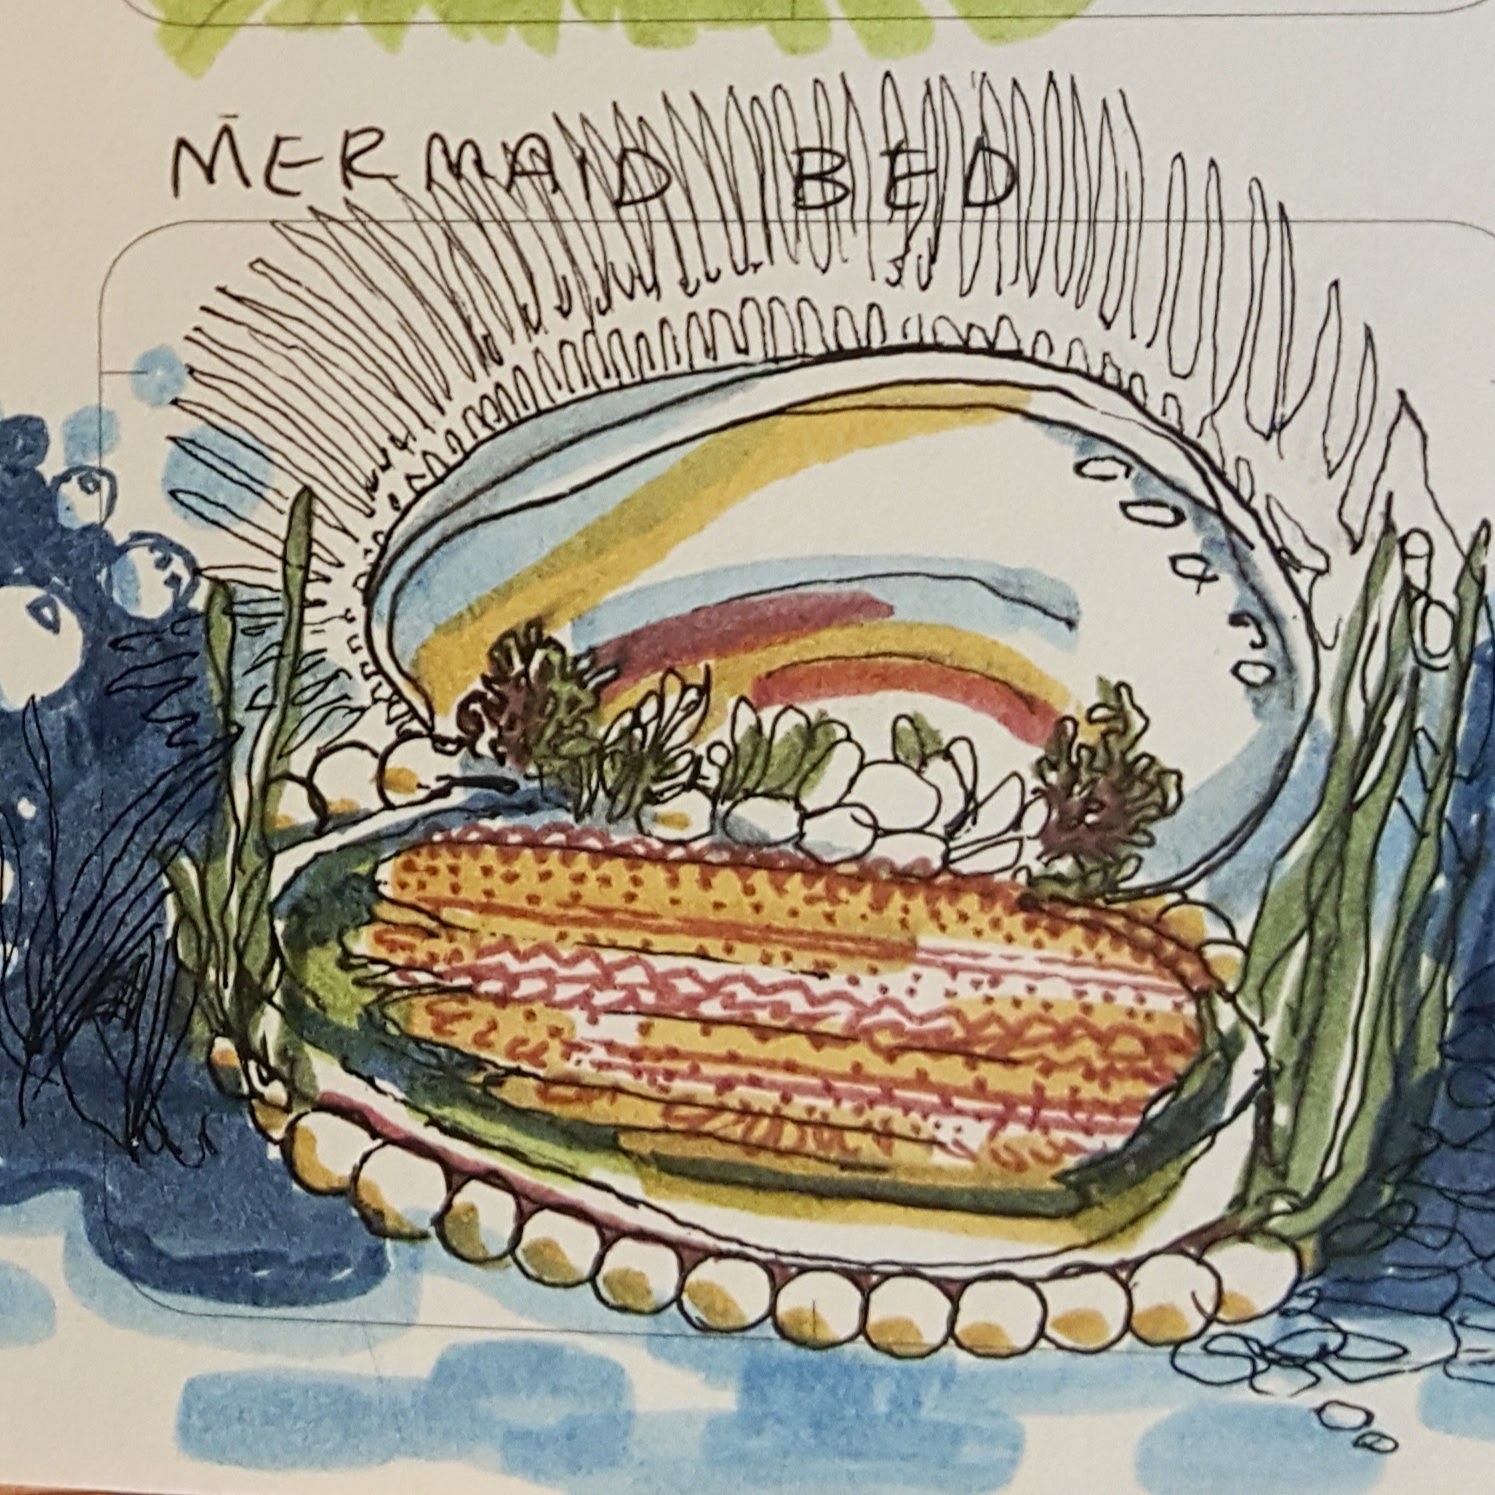 MERMAID BED